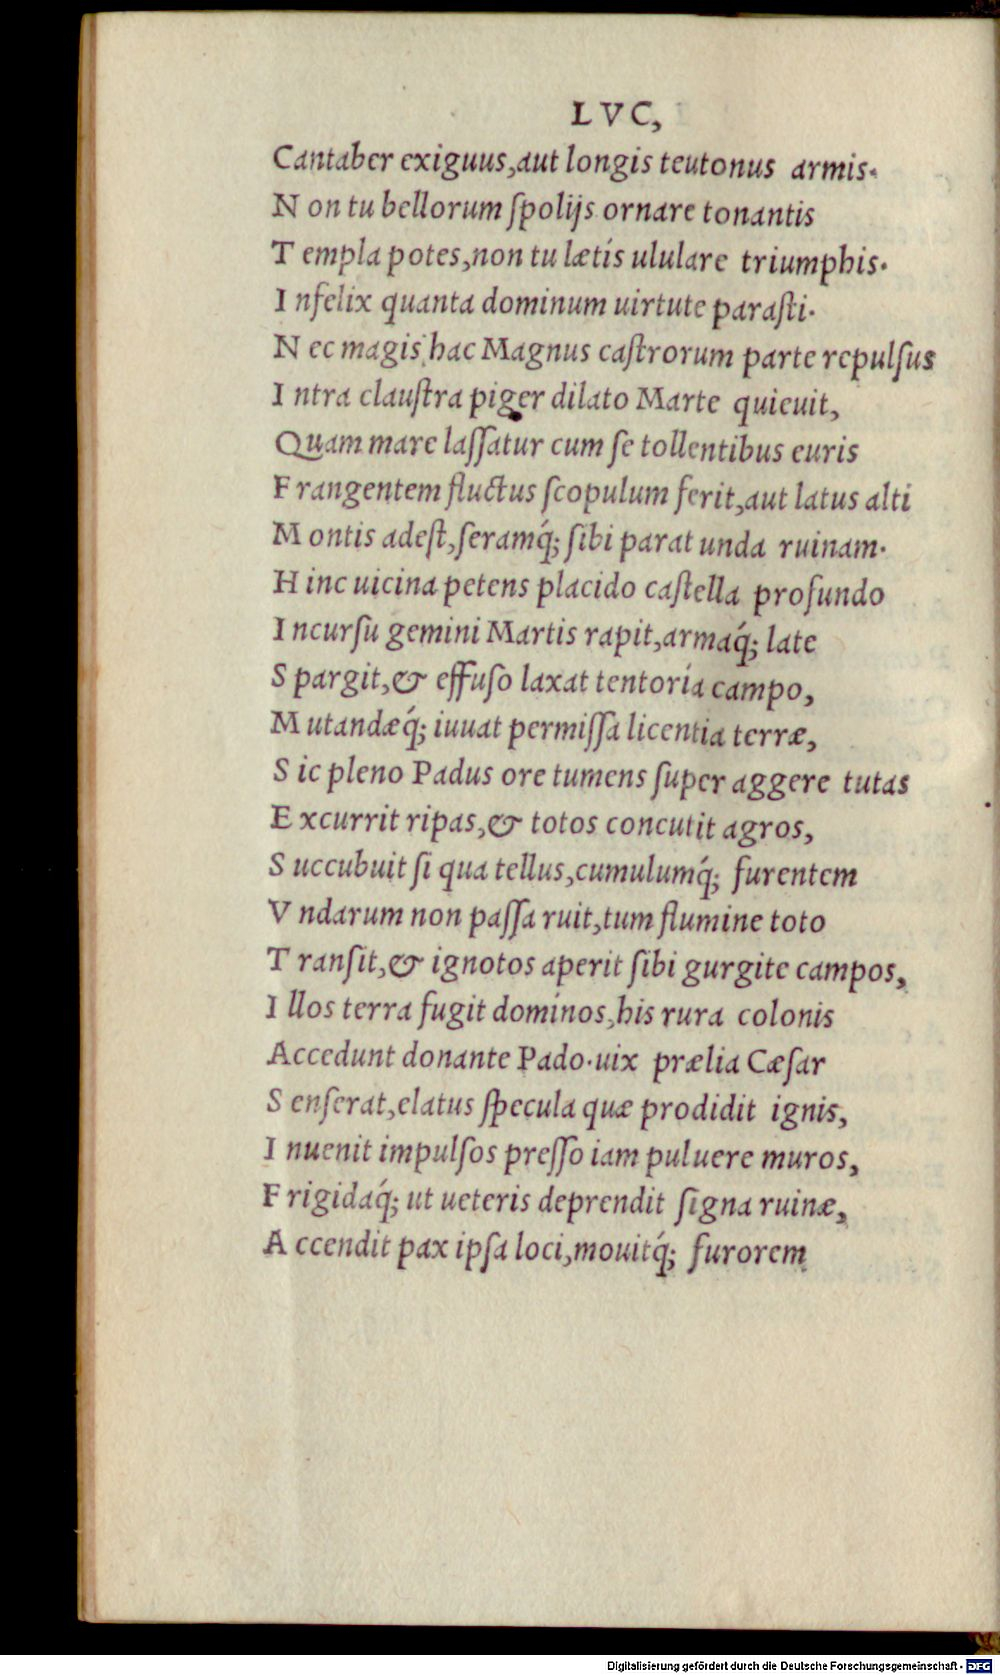 LVC,
Cantaber exiguus,aut longis teutonus armis.
N on tu bellorum ſpolijs ornare tonantis
T empla potes,non tu lætis ululare triumphis.
I nfelix quanta dominum uirtute paraſti.
N ec magis hac Magnus caſtrorum parte repulſus
I ntra clauſtra piger dilato Marte quieuit,
Quam mare laſſatur cum ſe tollentibus euris
F rangentem fluctus ſcopulum ferit,aut latus alti
M ontis adeſt,ſeramq́; ſibi parat unda ruinam.
H inc uicina petens placido caſtella profundo
I ncurſu gemini Martis rapit,armaq́; late
S pargit,& effuſo laxat tentoria campo,
M utandæq́; iuuat permiſſa licentia terræ,
S ic pleno Padus ore tumens ſuper aggere tutas
E xcurrit ripas,& totos concutit agros,
S uccubuit ſi qua tellus,cumulumq́; furentem
V ndarum non paſſa ruit,tum flumine toto
T ranſit,& ignotos aperit ſibi gurgite campos,
I llos terra fugit dominos,his rura colonis
Accedunt donante Pado.uix prælia Cæſar
S enſerat,elatus ſpecula quæ prodidit ignis,
I nuenit impulſos preſſo iam puluere muros,
F rigidaq́; ut ueteris deprendit ſigna ruinæ,
A ccendit pax ipſa loci,mouitq́; furorem
Digitalisierung gefördert durch die Deutsche Forschungsgemeinschaft - DFG